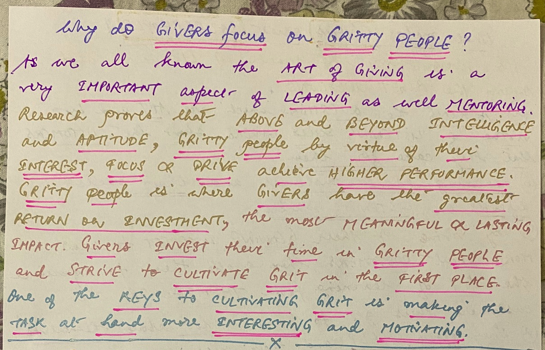 Why do GIVERS focus on GRITTY PEOPLE?
As we all known the ART of GIVING is a
very IMPORTANT aspect of LEADING as well MENTORING.
Research proves that ABOVE and BEYOND INTELLIGENCE
and APTITUDE, GRITTY people by virtue of their
INTEREST, FOCUS & DRIVE achieve HIGHER PERFORMANCE.
GRITTY people is where GIVERS have the greatest
RETURN on INVESTMENT, the most MEANINGFUL & LASTING
IMPACT. Givers INVEST their time in GRITTY PEOPLE
and STRIVE to CULTIVATE GRIT in the FIRST PLACE.
One of the KEYS to CULTIVATING GRIT is making the
TASK at hand more INTERESTING and MOTIVATING.